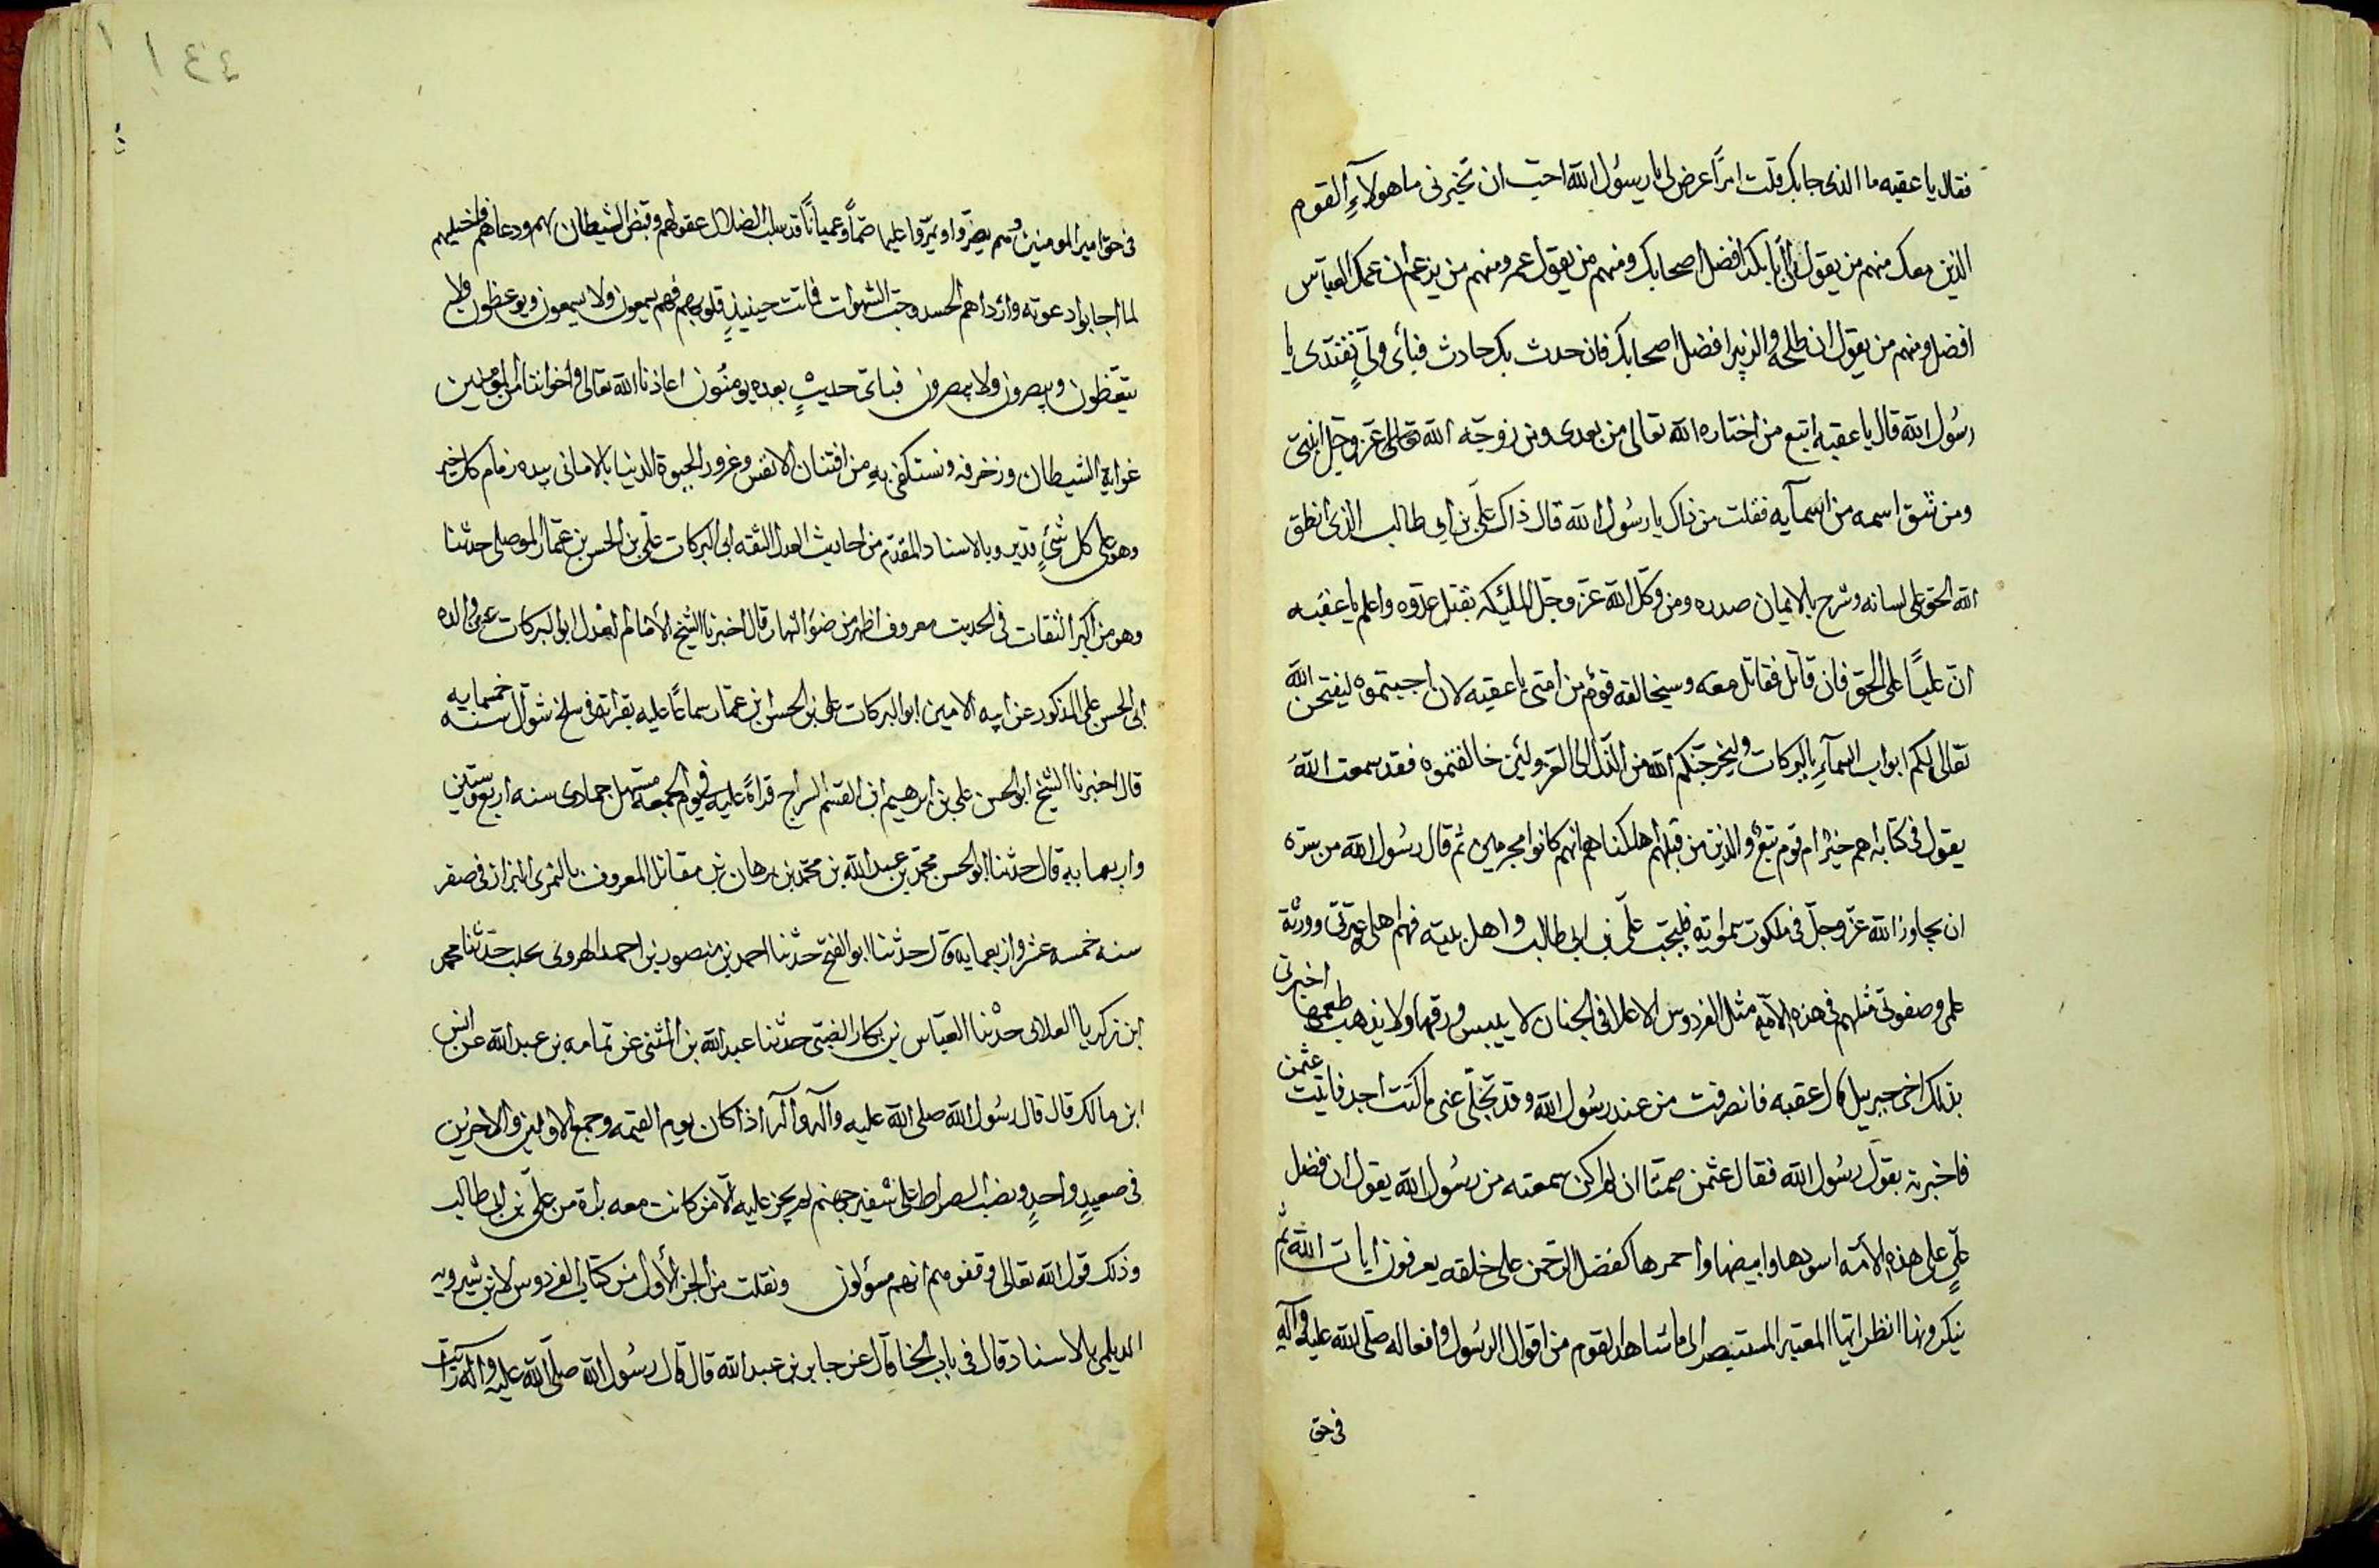 فقال يا عقبه ما الذى جابك قلت امرًا عرض لى يا رسول الله احب ان تخبرنى ما هولاءِ القوم
الذين معك منهم من يقول انّ ابا بكر افضل اصحابك ومنهم من يقول عمر ومنهم من يزعم ان عمك العباس
افضل ومنهم من يقول ان طلحة والزبير افضل اصحابك فان حدث بك حادث فبأى ولىٍّ نقتدى يا
رسول الله قال يا عقبه اتبع من اختاره الله تعالى من بعدى ومن زوجه الله تعالى عز وجل ابنتى
ومن شق اسمه من اسمآيه فقلت من ذاك يا رسول الله قال ذاك علىّ بن ابى طالب الذى انطق
الله الحق على لسانه وشرح بالايمان صدره ومن وكل الله عز وجل الملئيكه بقتل عدوه واعلم يا عقبه
انّ عليًا على الحق فان قاتل فقاتل معه وسيخالفه قوم من امتى يا عقبه لان اجبتموه ليفتحن الله
تعالى لكم ابواب السمآءِ بالبركات وليخرجنكم الله من الذل الى العز ولئن خالفتموه فقد سمعت الله
يقول فى كتابه اهم خير ام قوم تبع والذين من قبلهم اهلكناهم انهم كانوا مجرمين ثم قال رسول الله من سره
ان يجاور الله عز وجل فى ملكوت سمواته فليحب علىّ بن ابى طالب واهل بيته فهم اهلى وعترتى وورثة
علمى وصفوتى مثلهم فى هذه الامة مثل الفردوس الاعلا فى الجنان لا ييبس ورقها ولا يذهب طعمها اخبرنى
بذلك اخى جبرييل قال عقبه فانصرفت من عند رسول الله وقد تجلّى عنى ما كنت اجد فاتيت عثمن
فاخبرته بقول رسول الله فقال عثمن صمتا ان لم اكن سمعته من رسول الله يقول ان فضل
علىٍّ على هذه الامّة اسودها وابيضها واحمرها كفضل الرحمن على خلقه يعرفون ايات الله ثم
ينكرونها انظر ايّها المعتبر المستبصر الى ما شاهد القوم من اقوال الرسول وافعاله صلى الله عليه وآله
فى حق
١٤٤
فى حق امير المومنين وهم يصرّوا ويمرّوا عليها صمّاً وعمياناً قد سلب الضلال عقولهم وقبض الشيطان بهم ودعاهم فاخيلهم
لما اجابوا دعوته وارداهم الحسد وحب الشهوات فماتت حينيذٍ قلوبهم فهم يسمعون ولا يسمعون ويوعظون ولا
يتعظون ويبصرون ولا يبصرون فباى حديثٍ بعده يومنون اعاذنا الله تعالى واخواننا المومنين
غواية الشيطان وزخرفه ونستكفى به من افتنان الانفس وغرور الحيوة الدنيا بالامانى بيده زمام كل خير
وهو على كل شئٍ قدير وبالاسناد المقدم من احاديث العدل الثقه ابى البركات على بن الحسن بن عمار الموصلى حدثنا
وهو من اكبر الثقات فى الحديث معروف اظهر من ضوء النهار قال اخبرنا الشيخ الامام العدل ابو البركات عن والده
ابى الحسن على المذكور عن ابيه الامين ابو البركات على بن الحسن بن عمار سماعًا عليه بقراته فى سلخ شوال سنه خمسمايه
قال اخبرنا الشيخ ابو الحسن على بن ابرهيم ابن القسم السراج قراةً عليه فى يوم الجمعه مستهل جمادى سنه اربع وستين
واربعمايه قال حدثنا ابو الحسن محمّد بن عبد الله بن محمّد بن برهان بن مقاتل المعروف بالثمرى البزاز فى صفر
سنه خمسه عشر واربعمايه قال حدثنا ابو الفتح حدثنا احمد بن منصور بن احمد الهروى بحلب حدثنا محمد
ابن زكريا الغلابى حدثنا العباس بن بكار الضبى حدثنا عبد الله بن المثنى عن ثمامه بن عبد الله عن انس
ابن مالك قال قال رسول الله صلى الله عليه وآله وآله اذا كان يوم القيمه وجمع الاولين والاخرين
فى صعيدٍ واحدٍ ونصب الصراط على شفير جهنم لم يجز عليه الّا من كانت معه براة من على بن ابى طالب
وذلك قول الله تعالى وقفوهم انهم مسؤلون ونقلت من الجز الاول من كتاب الفردوس لابن شيرويه
الديلمى بالاسناد قال فى باب الخا قال عن جابر بن عبد الله قال قال رسول الله صلّى الله عليه وآله رايت